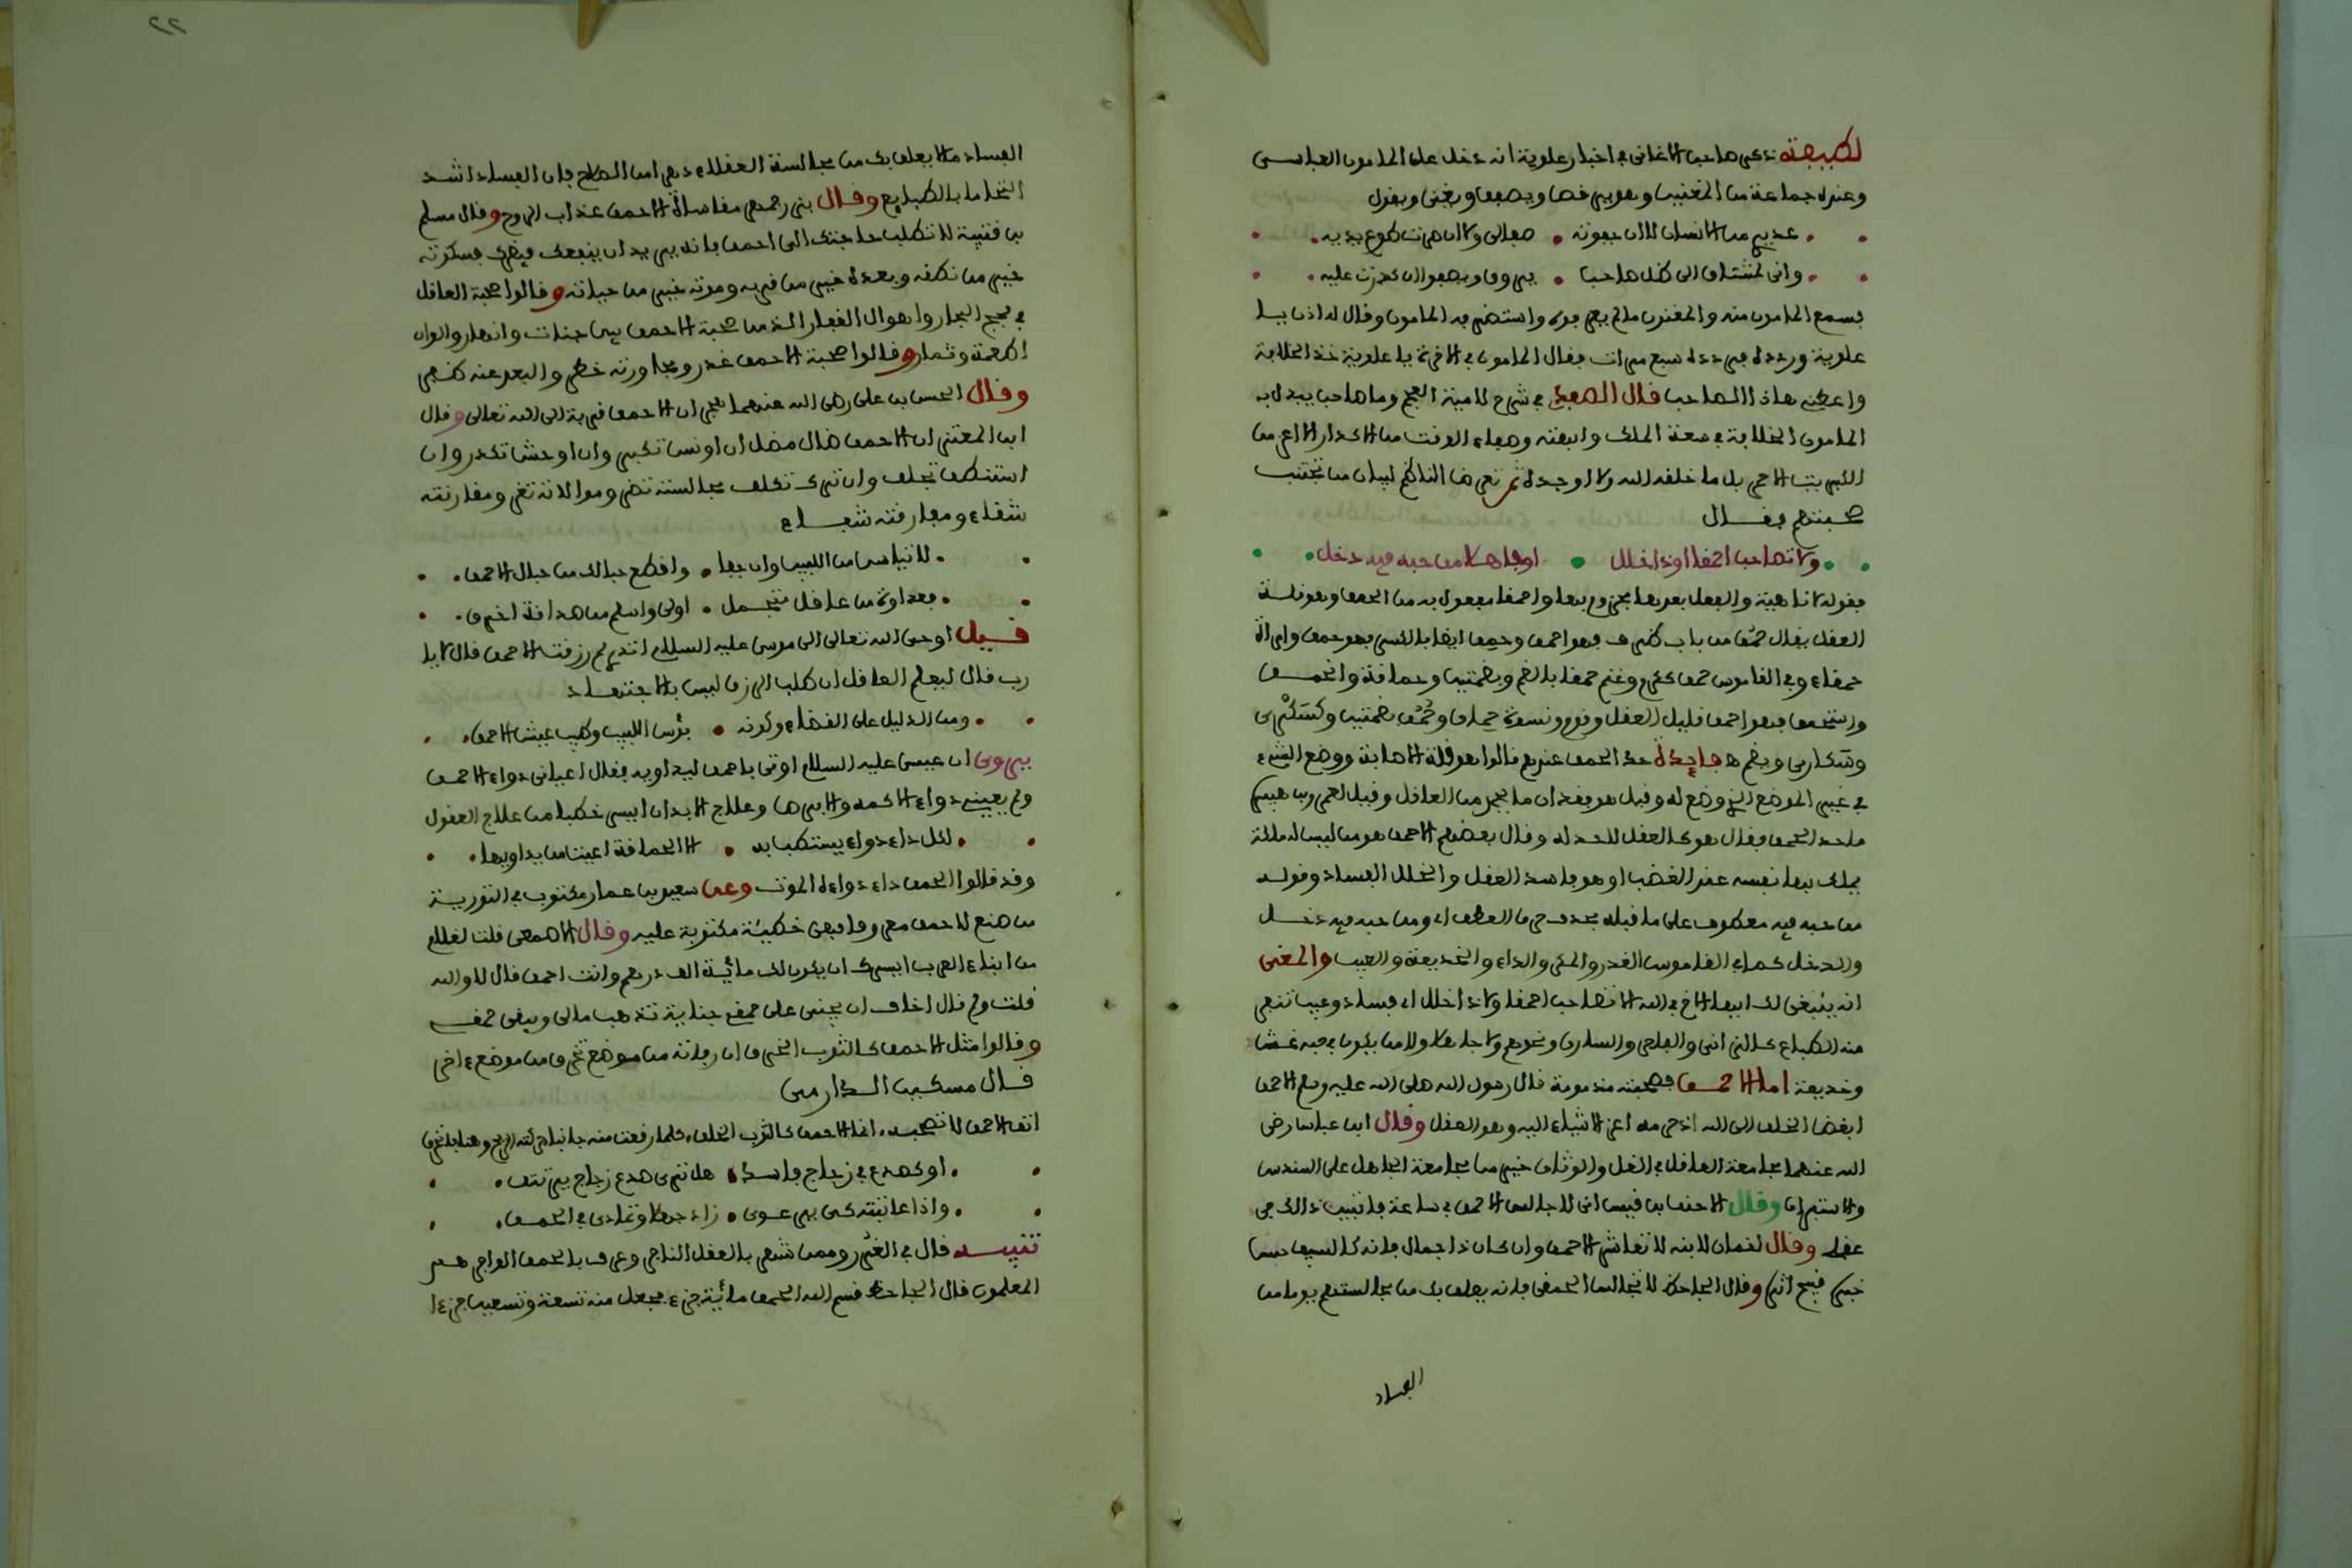 لطيفة ذكر صاحب الاغاني في اخبار علوية انه دخل على المامون العباسي
وعنده جماعة من المغنين وهو يرقص ويصفق ويغني ويقول
عذيري من الانسان لا ان جفوته صفالي ولا ان صرت طوع يديه
واني لمشتاق الى ظل صاحب يروق ويصفو ان كدرت عليه
فسمع المامون منه والمغنون مالم يعرفوه واستضرفه المامون وقال له ادن يا
علوية وردده فردده سبع مرات فقال المامون في الاخرة يا علوية خذ الخلافة
واعطني هاذا الصاحب قال الصفدي في شرح لامية العجم وما صاحب يبدل به
المامون الخلافة في سعة الملك وابهته وصفاء الوقت من الاكدار الا اعز من
الكبريت الاحمر بل ما خلقه الله ولا اوجده ثم تعرض الناظم لبيان من تجتنب
صحبتهم فقال
ولا تصاحب احمقا او ذا خلل او جاهلا من حبه فيه دخل
فقوله لا ناهية والفعل بعدها مجزوم بها واحمقا مفعول به من الحمق وهو قلة
العقل يقال حمق من باب ظرف فهو احمق وحمق ايضا بالكسر فهو حمق وامراة
حمقاء وفي القاموس حمق ككرم وغنم حمقا بالضم وبضمتين وحماقة وانحمق
واستحمق فهو احمق قليل العقل وقوم ونسوة حماق وحمق بضمتين وكسكرى
وسكارى ويضم فايدة حد الحمق عندهم قالوا هو قلة الاصابة ووضع الشيء
في غير الموضع الذي وضع له وقيل هو فقدان ما يحمد من العاقل وقيل لعمرو بن هبيرة
ما حد الحمق فقال هو كالعقل لا حد له وقال بعضهم الاحمق هو من ليس له ملكة
يملك بها نفسه عند الغضب او هو فاسد العقل والخلل الفساد وقوله
من حبه فيه معطوف على ما قبله بحذف حرف العطف اي ومن حبه فيه دخل
والدخل كما في القاموس الغدر والمكر والداء والخديعة والعيب والمعنى
انه ينبغي لك ايها الاخ في الله الا تصاحب احمقا ولا ذا خلل اي فساد وعيب تنفر
منه الطباع كالزاني والفاجر والسارق ونحوهم ولا جاهلا ولا من يكون في حبه غشا
وخديعة اما الاحمق فصحبته مذمومة قال رسول الله صلى الله عليه وسلم الاحمق
ابغض الخلق الى الله اذ حرمه اعز الاشياء اليه وهو العقل وقال ابن عباس رضي
الله عنهما مجامعة العاقل في الغل والوثاق خير من مجامعة الجاهل على السندس
والاستبرق وقال الاحنف بن قيس اني لا جالس الاحمق في ساعة فاتبين ذالك في
عقلي وقال لقمان لابنه لا تعاشر الاحمق وان كان ذا جمال فانه كالسيف حسن
قبيح اثره وقال الجاحظ لا تجالس الحمقى فانه يعلق بك من مجالستهم يوما من
الفساد
٢٢
الفساد مالا يعلق بك من مجالسة العقلاء دهرا من الصلاح فان الفساد اشد
التحاما بالطبايع وقال بزرجمهر مقاساة الاحمق عذاب الروح وقال مسلم
بن قتيبة لا تطلب حاجتك الى احمق فانه يريد ان ينفعك فيضرك فسكوته
خير من نطقه وبعده خير من قربه وموته خير من حياته وقالوا صحبة العاقل
في لجج البحار واهوال القفار الذ من صحبة الاحمق بين جنات وانهار والوان
اطعمة وثمار وقالوا صحبة الاحمق غدر ومجاورته خطر والبعد عنه ظفر
وقال الحسن بن علي رضي الله عنهما هجران الاحمق قربة الى الله تعالى وقال
ابن المعتز ان الاحمق ضال مضل ان اونس تكبر وان اوحش تكدر وان
استنطق تخلف وان ترك تكلف مجالسته تضر وموالاته تغر ومقارنته
شقاء ومفارقته شفاء
لا تياسن من اللبيب وان جفا واقطع حبالك من حبال الاحمق
فعداوة من عاقل متجمل اولى واسلم من صداقة اخرق
قيل اوحى الله تعالى الى موسى عليه السلام اتدري لم رزقت الاحمق قال لا يا
رب قال ليعلم العاقل ان طلب الرزق ليس بالاجتهاد
ومن الدليل على القضاء وكونه بؤس اللبيب وطيب عيش الاحمق
يروى ان عيسى عليه السلام اوتي باحمق ليداويه فقال اعياني دواء الاحمق
ولم يعيني دواء الاكمه والابرص وعلاج الابدان ايسر خطبا من علاج العقول
لكل داء دواء يستطب به الا الحماقة اعيت من يداويها
وقد قالوا الحمق داء دواءه الموت وعن سعيد بن عمار مكتوب في التورية
من صنع لاحمق معروفا فهي خطيئة مكتوبة عليه وقال الاصمعي قلت لغلام
من ابناء العرب ايسرك ان يكون لك مائية الف درهم وانت احمق قال لا والله
قلت ولم قال اخاف ان يجني علي حمقي جناية تذهب مالي ويبقى حمقي
وقالوا مثل الاحمق كالثوب الخرق ان رفاته من موضع تخرق من موضع ءاخر
قال مسكين الدارمي
اتق الاحمق لا تصحبه انما الاحمق كالثوب الخلق كلما رقعت منه جانبا حركته الريح وهنا فانخرق
او كصدع في زجاج فاسد هل ترى صدع زجاج يرتتق
واذا عاتبته كي يرعوى زاد جهلا وتمادى في الحمق
تنبيه قال في الغرر وممن شهر بالعقل الناجر وعرف بالحمق الوافر هم
المعلمون قال الجاحظ قسم الله الحمق مائية جزء فجعل منه تسعة وتسعين جزءا